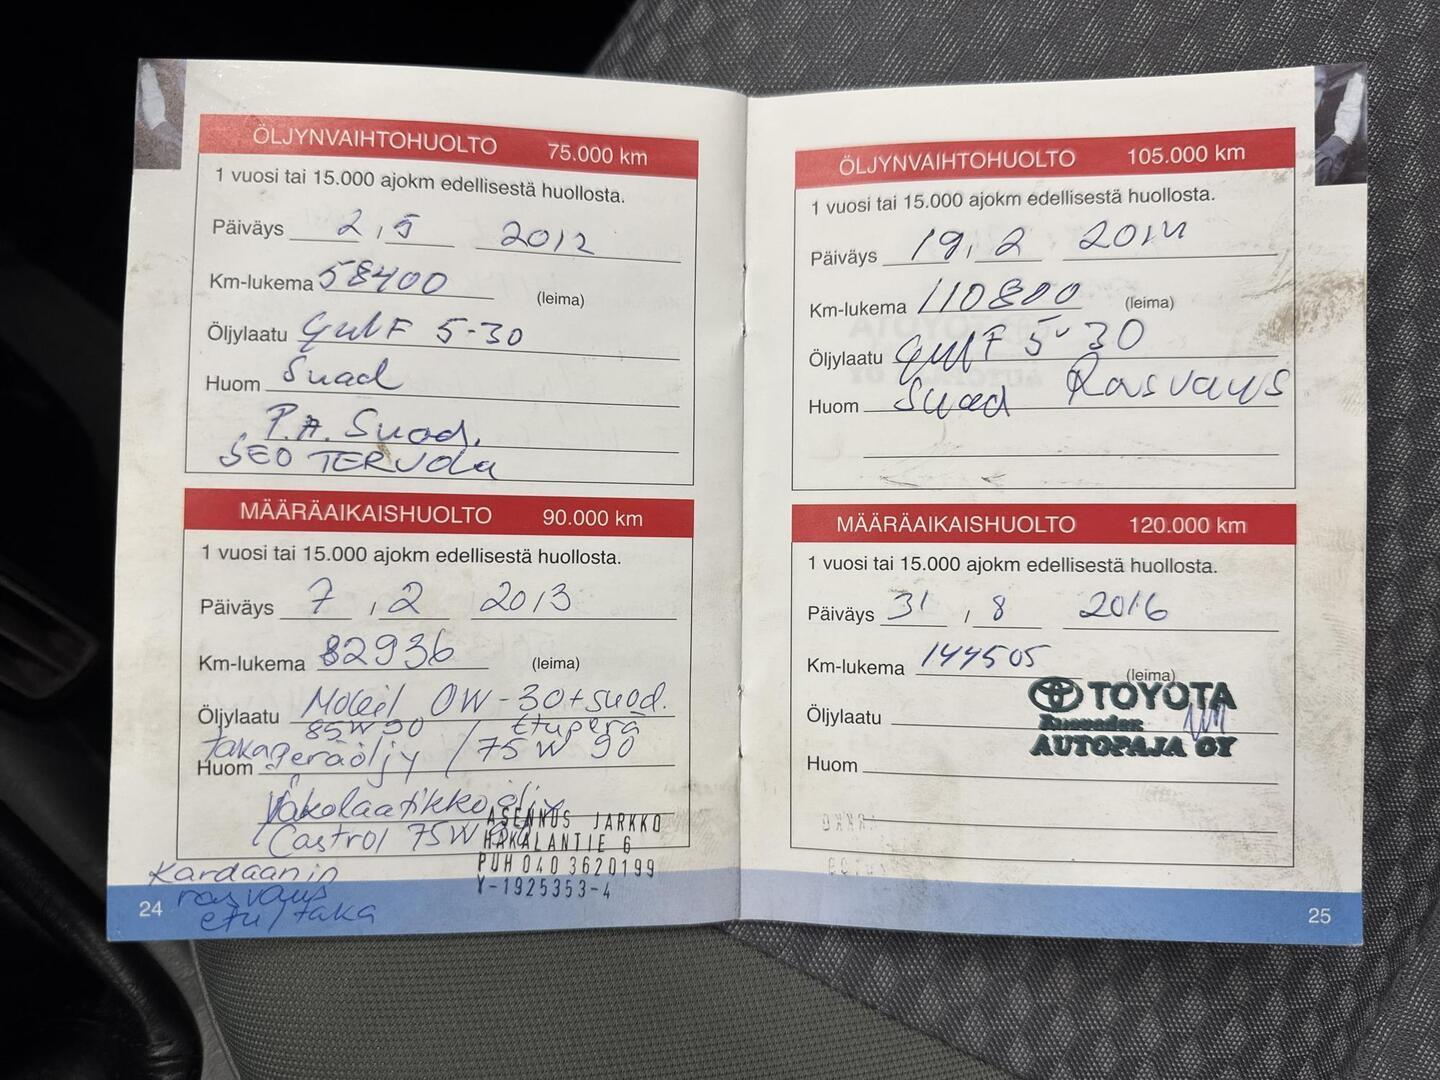 ÖLJYNVAIHTOHUOLTO 75.000 km
1 vuosi tai 15.000 ajokm edellisestä huollosta.
Päiväys 2,5 2012
Km-lukema 58400
(leima)
Öljylaatu Gulf 5-30
Huom Suod
P.A. Suod.
SEO TERVOLA
MÄÄRÄAIKAISHUOLTO 90.000 km
1 vuosi tai 15.000 ajokm edellisestä huollosta.
Päiväys 7,2 2013
Km-lukema 82936
(leima)
Öljylaatu Mobil 0W-30 + suod.
85W90 Etuperä
takaperäöljy / 75W90
Huom
Vakolaatikko öljy
Castrol 75W
ASENNUS JARKKO
HAKALANTIE 6
PUH 040 3620199
Y-1925353-4
Kardaanin
rasvaus
etu/taka
24
ÖLJYNVAIHTOHUOLTO 105.000 km
1 vuosi tai 15.000 ajokm edellisestä huollosta.
Päiväys 19,2 2014
Km-lukema 110800
(leima)
Öljylaatu Gulf 5-30
Huom Suod Rasvaus
MÄÄRÄAIKAISHUOLTO 120.000 km
1 vuosi tai 15.000 ajokm edellisestä huollosta.
Päiväys 31,8 2016
Km-lukema 144505
(leima)
TOYOTA
Öljylaatu
AUTOPAJA OY
Huom
25